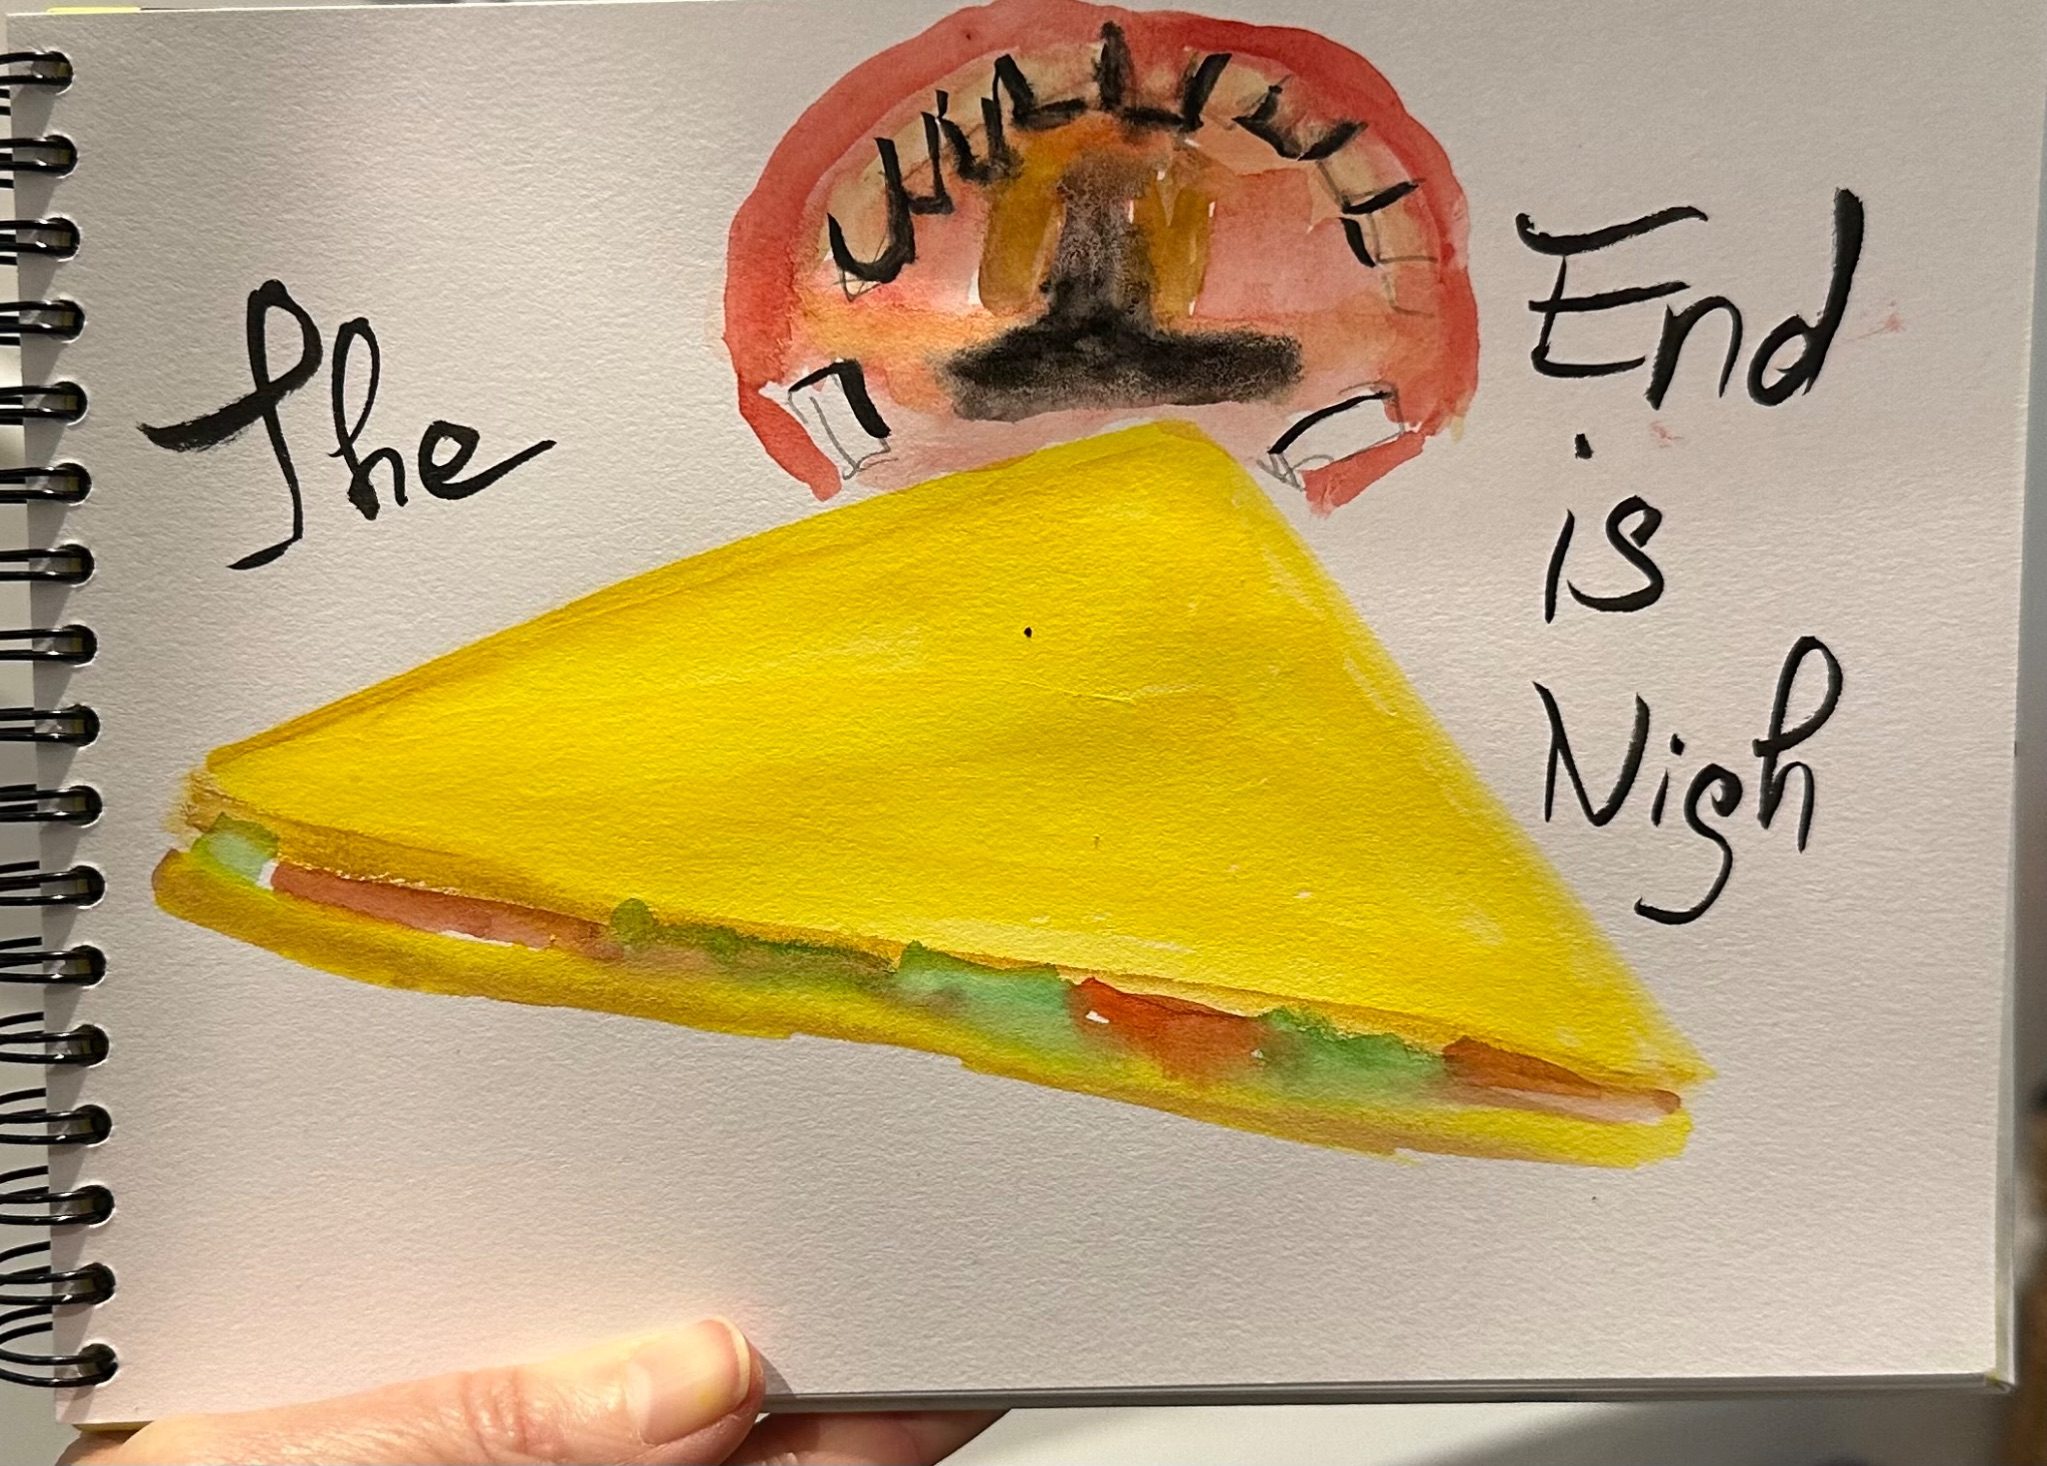 The
End
is
Nigh